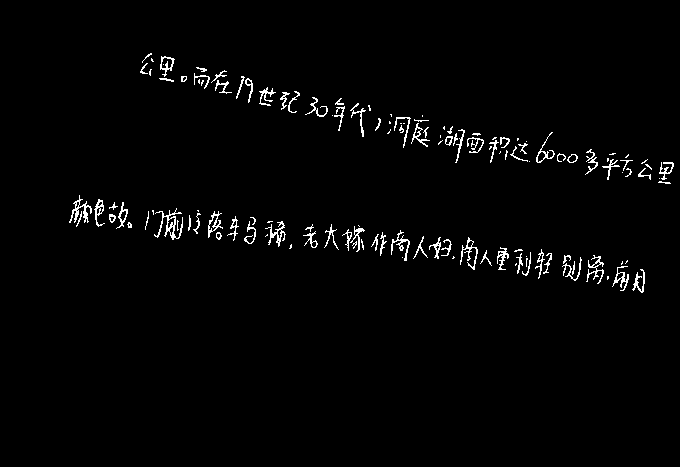 公里。而在19世纪30年代,洞庭湖面积达6000多平方公里
颜色故。门前冷落车马稀,老大嫁作商人妇.商人重利轻别离.前月